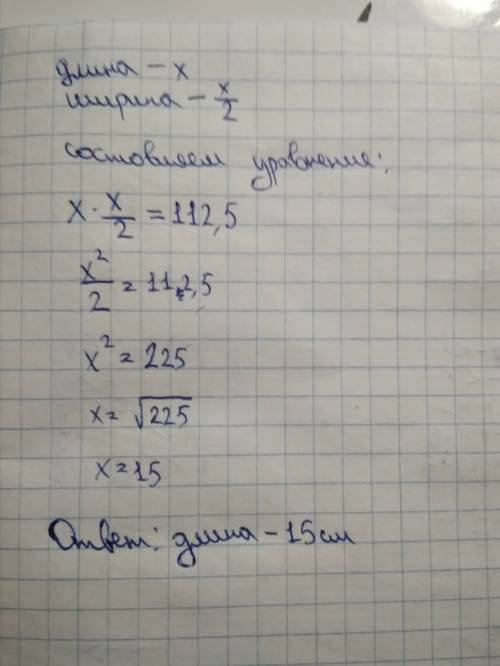 длина – x
ширина – x/2
состовляем уравнение:
x · x/2 = 112,5
x²/2 = 112,5
x² = 225
x = √225
x = 15
Ответ: длина – 15 см